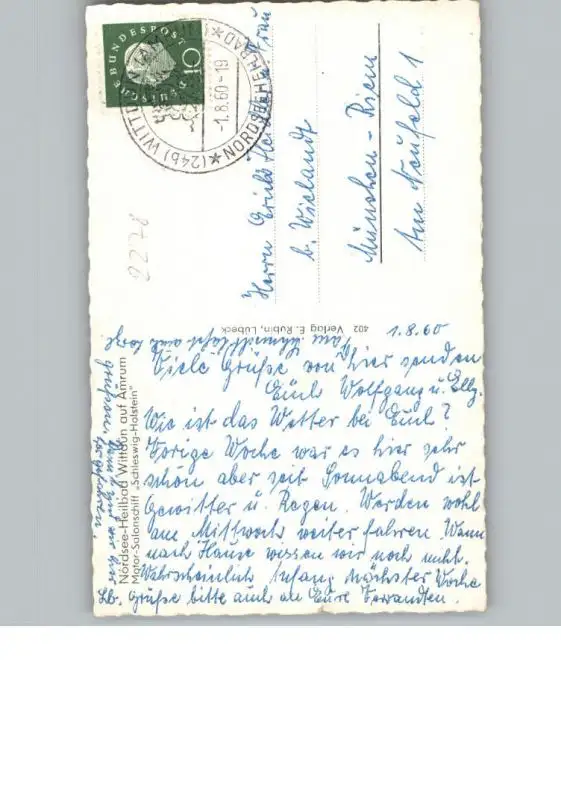 DEUTSCHE BUNDESPOST
10
(24b) WITTDÜN
NORDSEEHEILBAD
-1.8.60-19
2278
Herrn Erich u. Frau
b. Wieland
München-Riem
Am Neufeld 1
402 Verlag E. Rubin, Lübeck
Nordsee-Heilbad Wittdün auf Amrum
Motor-Salonschiff „Schleswig-Holstein"
1.8.60
Viele Grüße von hier senden
Euch Wolfgang u. Elly.
Wie ist das Wetter bei Euch?
Vorige Woche war es hier sehr
schön aber seit Sonnabend ist
Gewitter u. Regen. Werden wohl
am Mittwoch weiter fahren. Wann
nach Hause wissen wir noch nicht.
Wahrscheinlich Anfang nächster Woche
Lb. Grüße bitte auch an Eure Verwandten.
Fam. Schmidt läßt auch herzl.
grüßen, sind wir hier
hergefahren.